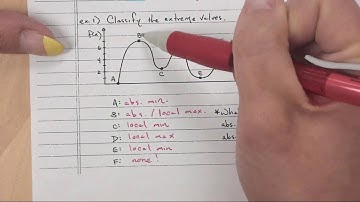 ex. 1) Classify the extreme values.
f(x)
B
6
4
2
A
C
E
A: abs. min.
B: abs. / local max. *Wha
C: local min abs.
D: local max abs.
E: local min
F: none!